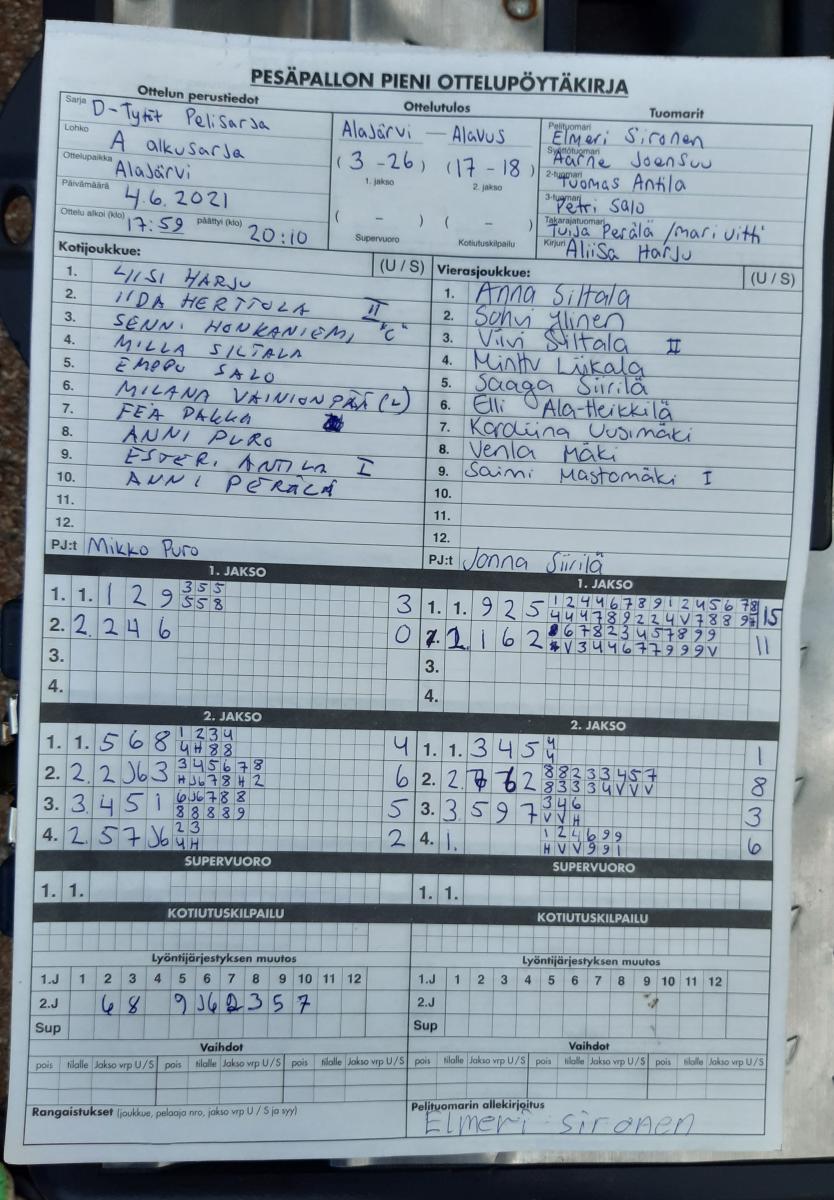 PESÄPALLON PIENI OTTELUPÖYTÄKIRJA
Ottelun perustiedot
Ottelutulos
Tuomarit
Sarja D-Tytöt Pelisarja
Lohko A alkusarja
Ottelupaikka Alajärvi
Päivämäärä 4.6.2021
Ottelu alkoi (klo) 17:59 päättyi (klo) 20:10
Alajärvi — Alavus
(3 - 26) (17 - 18)
1. jakso 2. jakso
( - ) ( - )
Supervuoro Kotiutuskilpailu
Pelituomari Elmeri Sironen
Syöttötuomari Aarne Joensuu
2-tuomari Tuomas Antila
3-tuomari Petri Salo
Takarajatuomari Tuija Perälä / mari vitti
Kirjuri Aliisa Harju
Kotijoukkue: (U / S)
1. LIISI HARJU
2. IIDA HERTTOLA II
3. SENNI HONKANIEMI "C"
4. MILLA SILTALA
5. EMPPU SALO
6. MILANA VAINIONPÄÄ (L)
7. FEA PAKKA
8. ANNI PURO
9. ESTERI ANTILA I
10. ANNI PERÄLÄ
11.
12.
PJ:t Mikko Puro
Vierasjoukkue: (U / S)
1. Anna Siltala
2. Sohvi Ylinen
3. Viivi Siltala II
4. Minttu Liikala
5. Saaga Siirilä
6. Elli Ala-Heikkilä
7. Karoliina Uusimäki
8. Venla Mäki
9. Saimi Mastomäki I
10.
11.
12.
PJ:t Jonna Siirilä
1. JAKSO
1. 1. 1 2 9 3 5 5 3
5 5 8
2. 2. 2 4 6 0
3.
4.
1. JAKSO
1. 1. 9 2 5 1 2 4 4 6 7 8 9 1 2 4 5 6 7 8 15
4 4 4 7 8 9 2 2 4 V 7 8 8 9
2. 1. 1 6 2 6 7 8 2 3 4 5 7 8 9 9 11
V 3 4 4 6 7 7 9 9 9 V
3.
4.
2. JAKSO
1. 1. 5 6 8 1 2 3 4 4
4 H 8 8
2. 2. 2 J6 3 3 4 5 6 7 8 6
H J6 7 8 H 2
3. 3. 4 5 1 6 J6 7 8 8 5
8 8 8 8 9
4. 2. 5 7 J6 2 3 2
4 H
2. JAKSO
1. 1. 3 4 5 4 1
4
2. 2. 6 2 8 8 2 3 3 4 5 7 8
8 3 3 3 4 V V V
3. 3. 5 9 7 3 4 6 3
V V H
4. 1. 1 2 4 6 9 9 6
H V V 9 9 1
SUPERVUORO
1. 1.
SUPERVUORO
1. 1.
KOTIUTUSKILPAILU
KOTIUTUSKILPAILU
Lyöntijärjestyksen muutos
1.J 1 2 3 4 5 6 7 8 9 10 11 12
2.J 6 8 9 J6 2 3 5 7
Sup
Lyöntijärjestyksen muutos
1.J 1 2 3 4 5 6 7 8 9 10 11 12
2.J
Sup
Vaihdot
pois tilalle Jakso vrp U/S pois tilalle Jakso vrp U/S pois tilalle Jakso vrp U/S
Vaihdot
pois tilalle Jakso vrp U/S pois tilalle Jakso vrp U/S pois tilalle Jakso vrp U/S
Rangaistukset (joukkue, pelaaja nro, jakso vrp U / S ja syy)
Pelituomarin allekirjoitus
Elmeri sironen